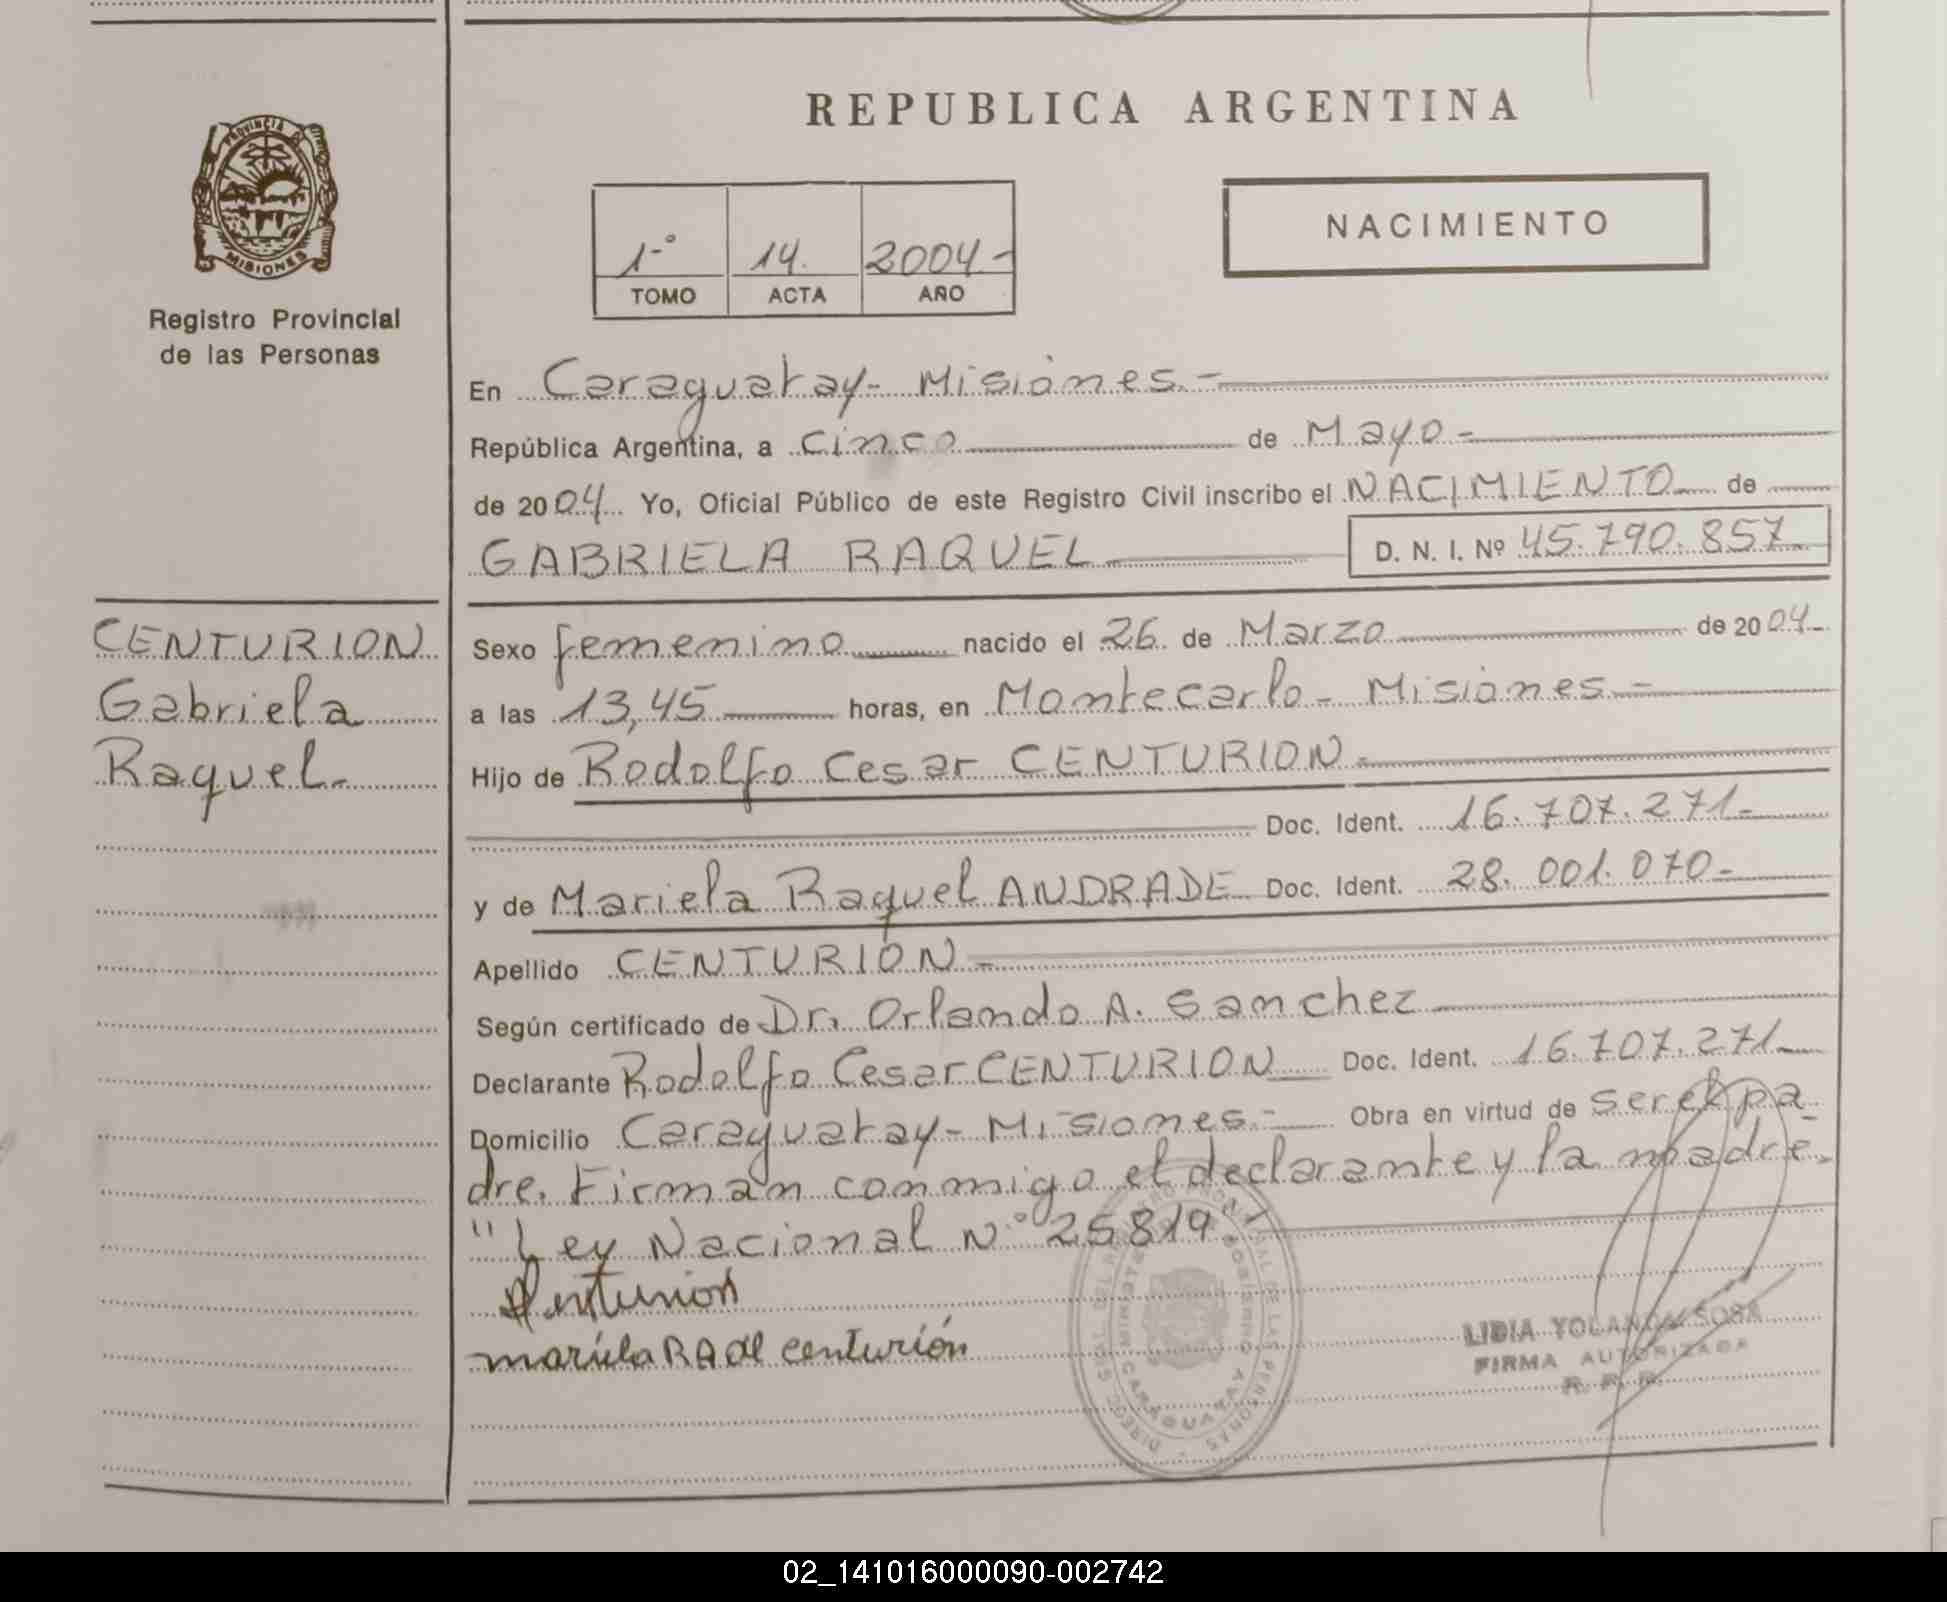 REPUBLICA ARGENTINA
PROVINCIA DE
MISIONES
Registro Provincial
de las Personas
1º 14. 2004-
TOMO ACTA AÑO
NACIMIENTO
En Caraguatay- Misiones.-
República Argentina, a cinco de Mayo-
de 2004 Yo, Oficial Público de este Registro Civil inscribo el NACIMIENTO de
GABRIELA RAQUEL D. N. I. Nº 45.790.857
CENTURION
Gabriela
Raquel-
Sexo femenino nacido el 26 de Marzo de 2004-
a las 13,45 horas, en Montecarlo- Misiones-
Hijo de Rodolfo Cesar CENTURION-
Doc. Ident. 16.707.271-
y de Mariela Raquel ANDRADE Doc. Ident. 28.001.070-
Apellido CENTURION-
Según certificado de Dr. Orlando A. Sanchez
Declarante Rodolfo Cesar CENTURION Doc. Ident. 16.707.271-
Domicilio Caraguatay- Misiones- Obra en virtud de ser el pa-
dre. Firman conmigo el declarante y la madre.
"Ley Nacional Nº 25819"
Centurion
mariela centurión
CARAGUATAY
LIDIA YOLANDA SOSA
FIRMA AUTORIZADA
R. P. P.
02_141016000090-002742